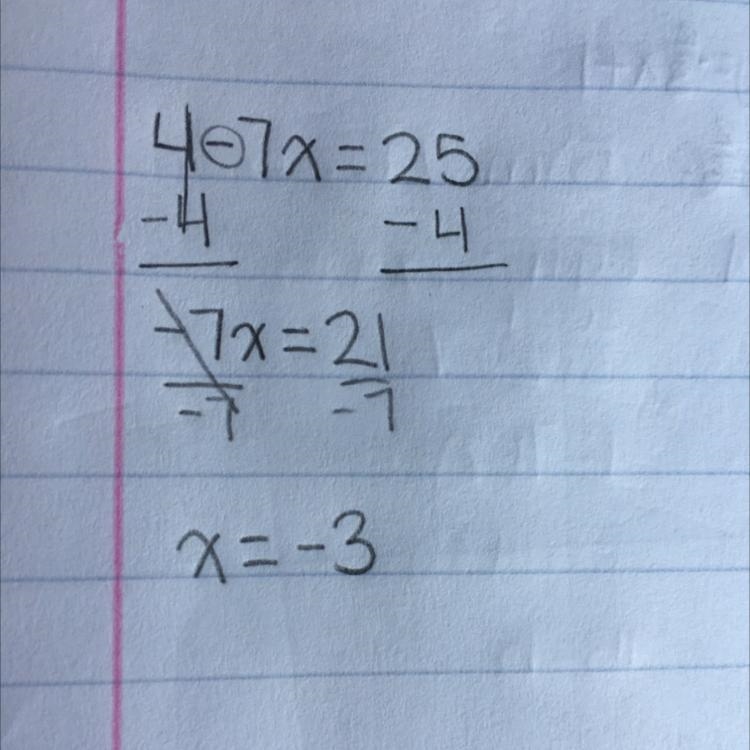 4-7x=25
-4 -4
-7x=21
-7 -7
x=-3